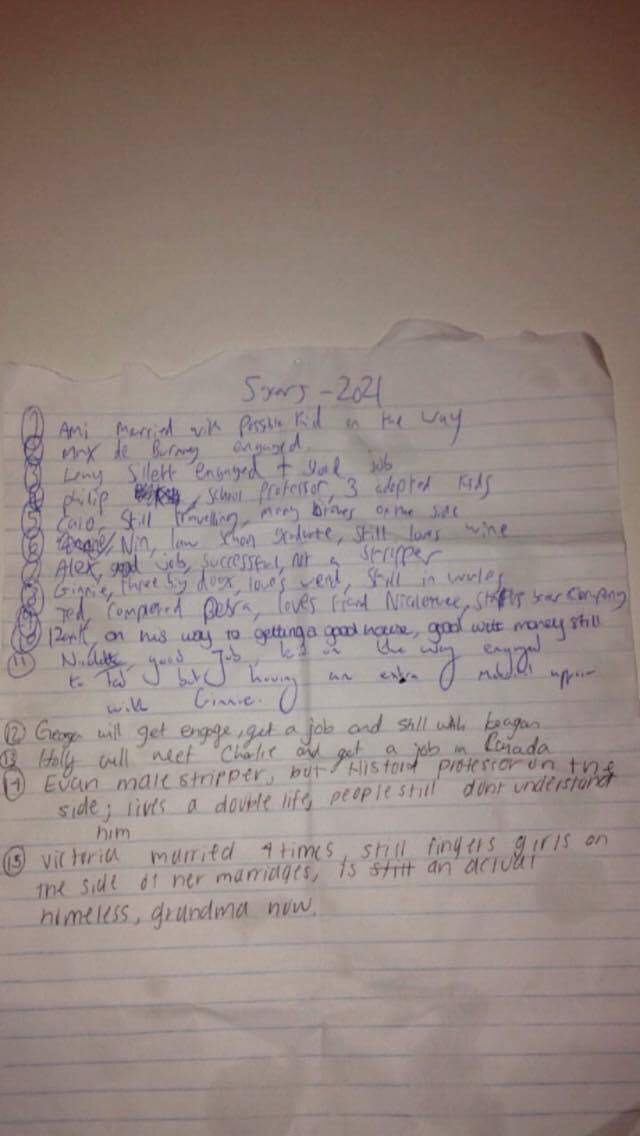 5 years - 2021
1 Ami married with possible kid on the way
2 Max de Burnay engaged.
3 Lenny Silett engaged + job
4 philip, school professor, 3 adopted kids
5 Caio, Still travelling, many on the side
6 Nin, law school graduate, still loves wine
Alex, good job, successful, not a stripper
8 Ginnie, three big dogs, loves, still in
9 Ted, Petra, loves, company
10, on his way to getting a good house, good with money still
11, good job, kid on the way engaged
to Ted but having an extra marital
with Ginnie.
12 will get engage, get a job and still with keagan
13 Holy will meet Charlie and get a job in Canada
14 Evan male stripper, but History professor on the
side; lives a double life, people still dont understand
him
15 Victoria married 4 times, still fingers girls on
the side of her marriages, is still an actual
grandma now.